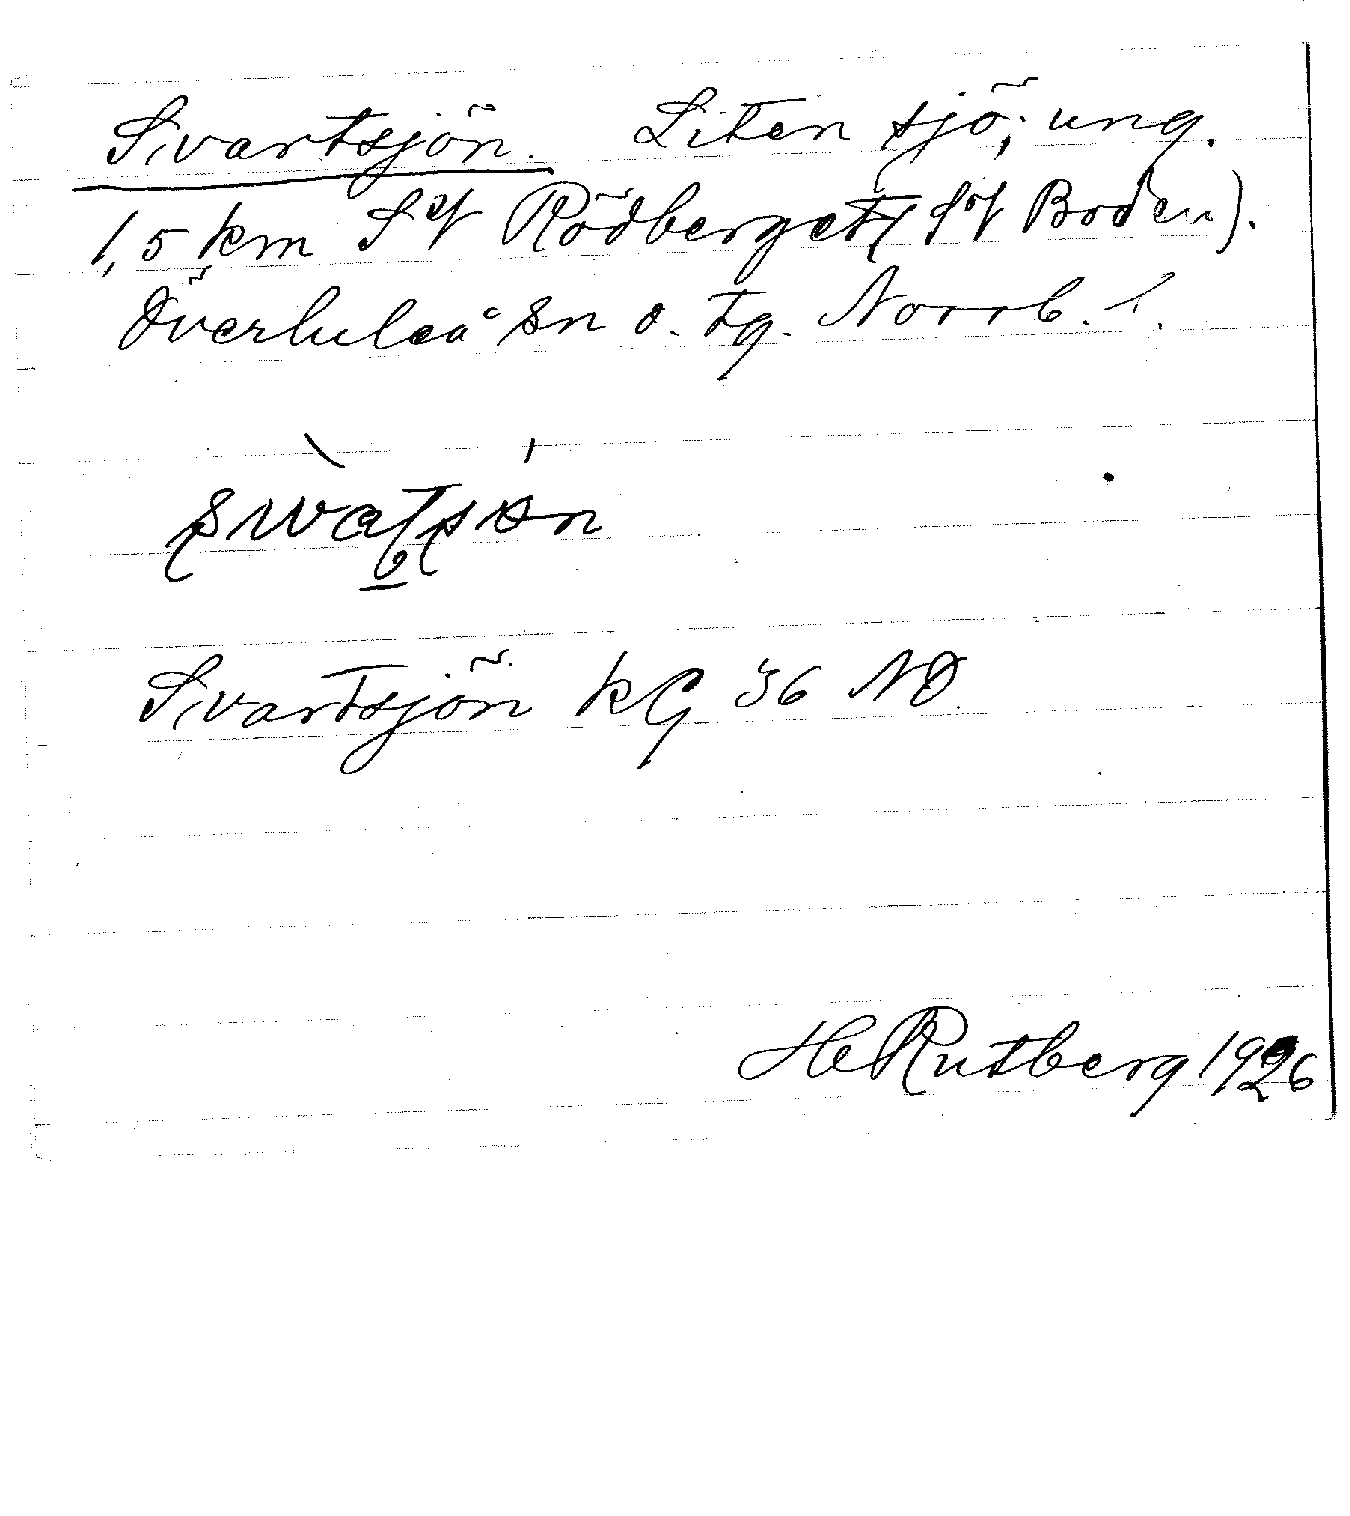 Svartsjön. Liten sjö; ung.
1,5 km S of Rödberget (S of Boden).
Överluleå sn o. tg. Norrb. l.
Svartsjön KG 36 NO
HeRutberg 1926